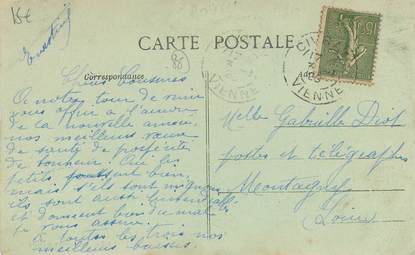 15€
CARTE POSTALE
Correspondance
VIENNE
VIENNE
Chers Cousines
A notre tour de venir
vous offrir à l'aurore
de la nouvelle année
nos meilleurs vœux
de santé de prospérité
de bonheur. Oui les
petits poussent bien
mais s'ils sont mignons
ils sont aussi
et donnent bien du mal
je vous assure.
à toutes les trois nos
meilleurs baisers.
Melle Gabrielle Diot
postes et télégraphes
Montagny
Loire